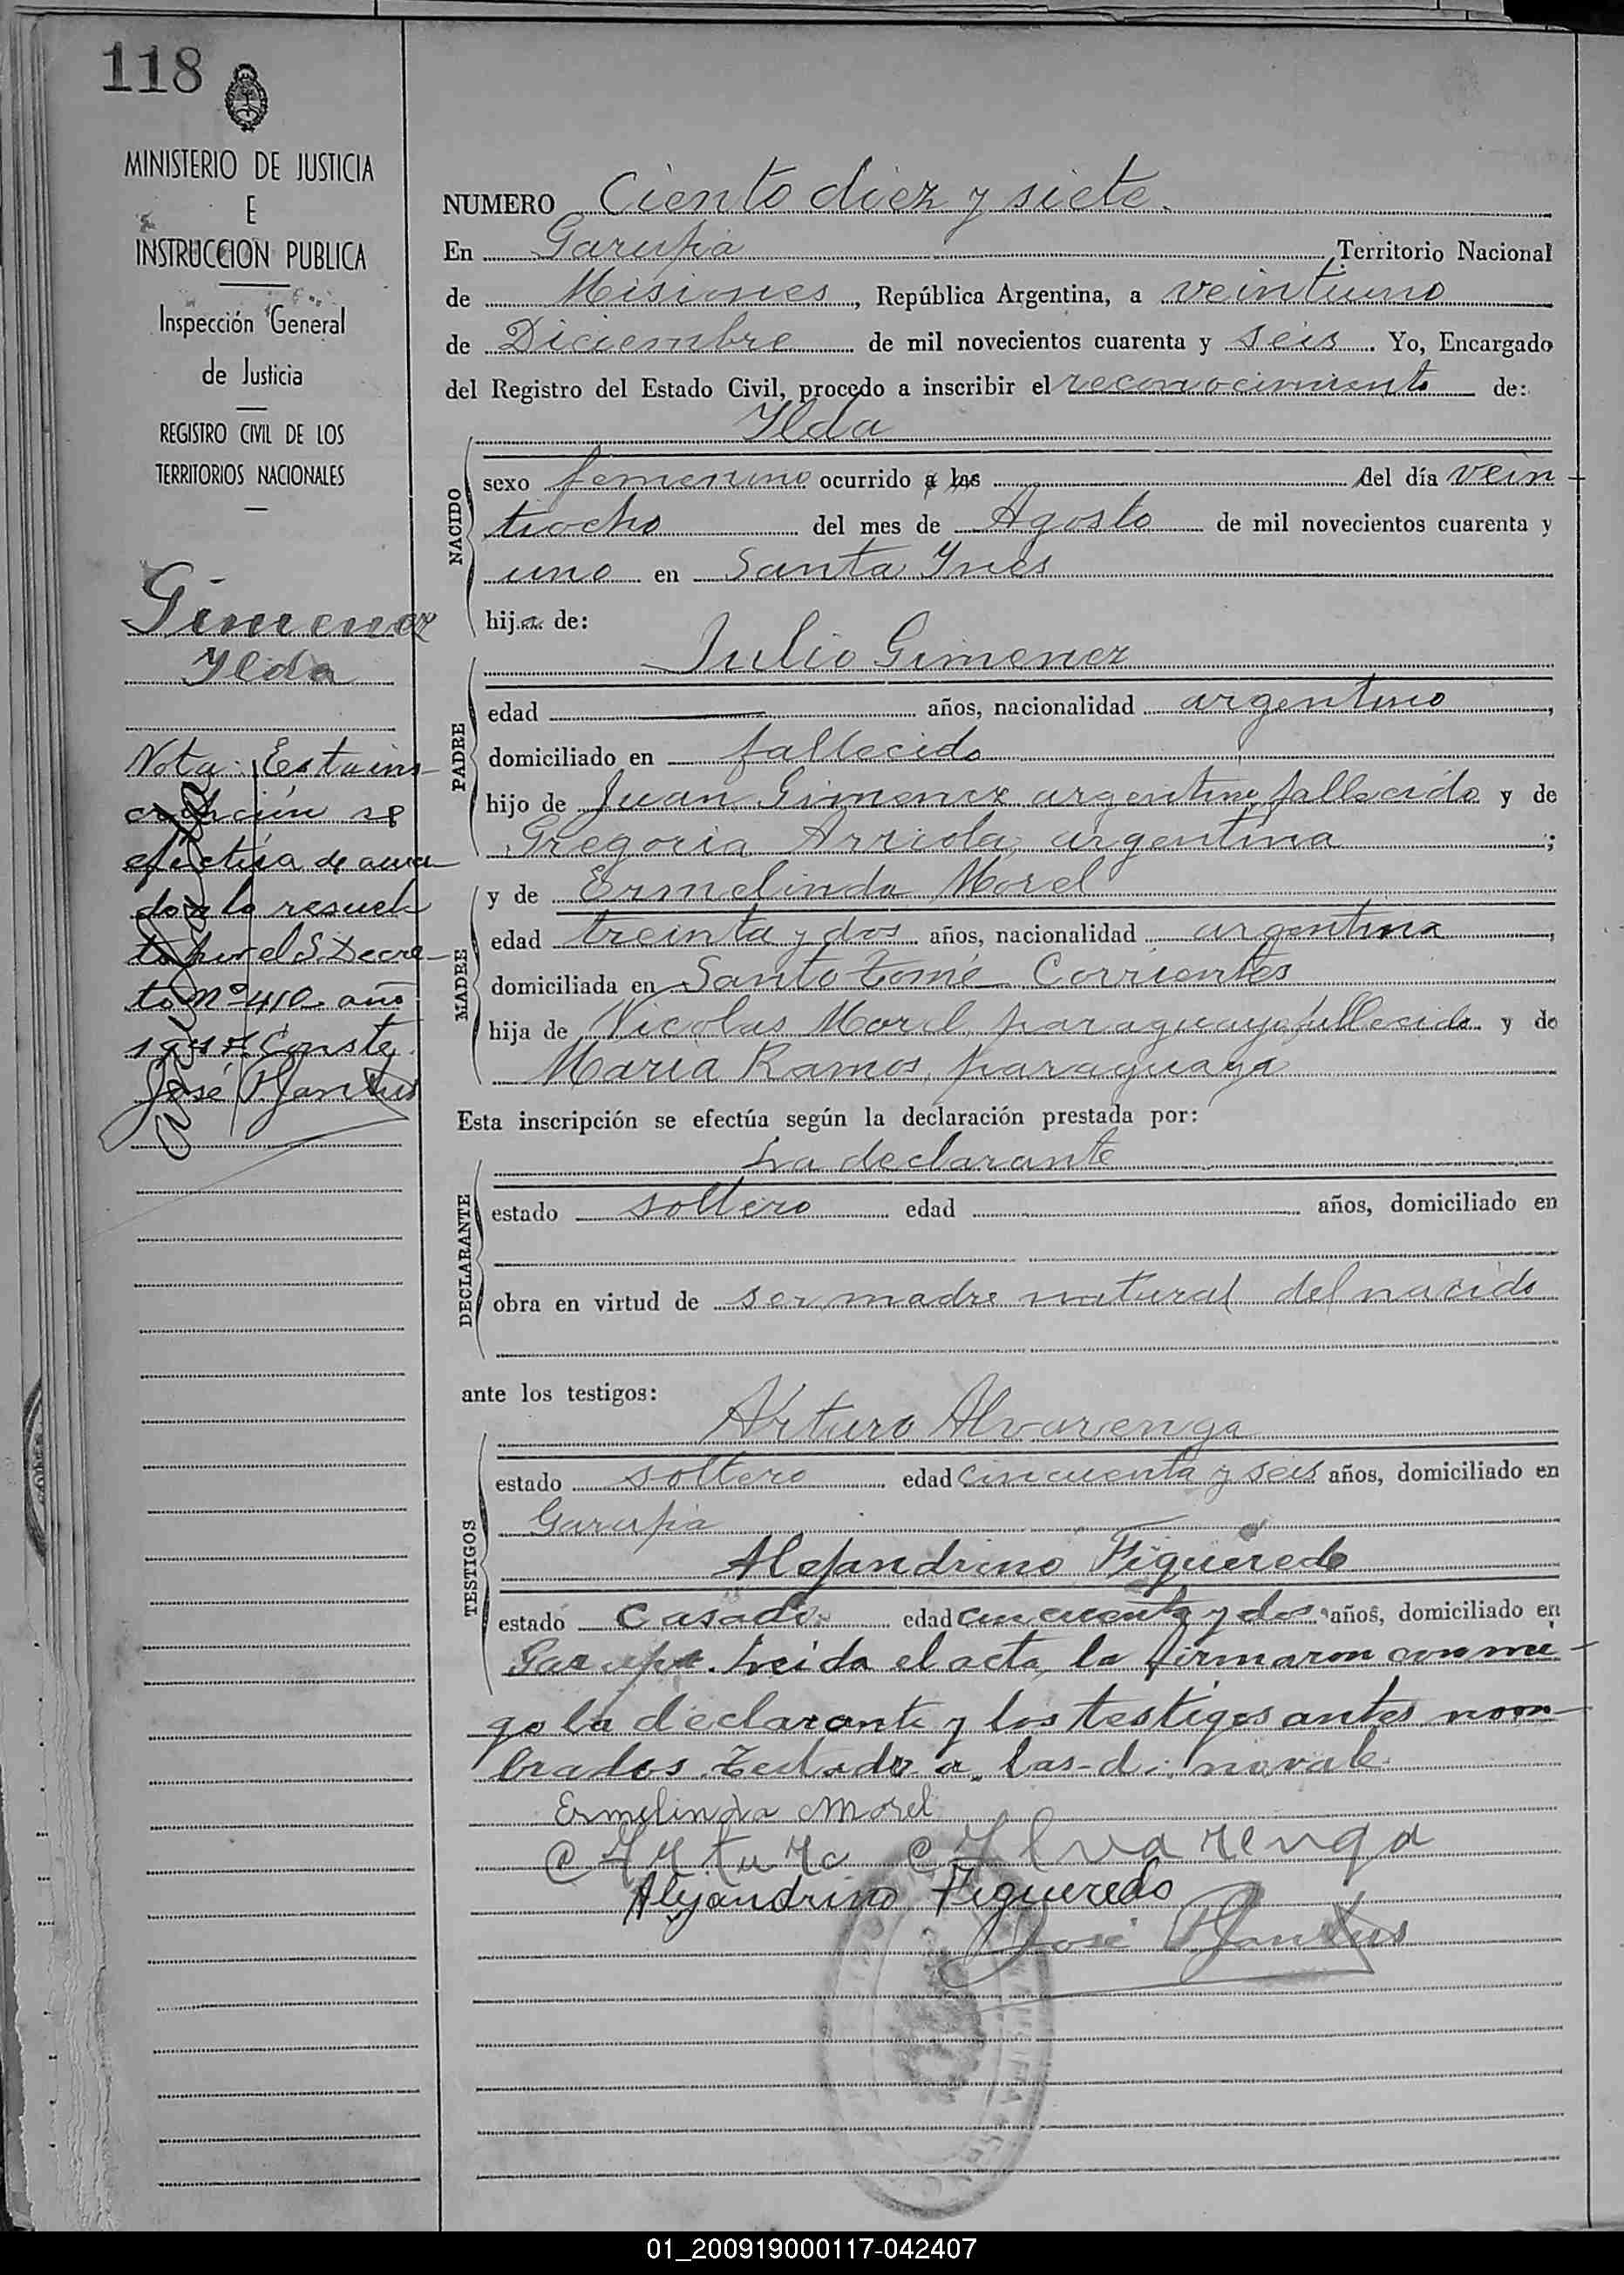 118
MINISTERIO DE JUSTICIA
E
INSTRUCCION PUBLICA
Inspección General
de Justicia
REGISTRO CIVIL DE LOS
TERRITORIOS NACIONALES
Gimenez
Ylda
Nota: Esta ins-
cripción se
efectúa de acuer
do a lo resuel
to por el S. Decre-
to Nº 410 año
Conste.
José
NUMERO Ciento diez y siete.
En Garupá Territorio Nacional
de Misiones, República Argentina, a veintiuno
de Diciembre de mil novecientos cuarenta y seis. Yo, Encargado
del Registro del Estado Civil, procedo a inscribir el reconocimiento de:
Ylda
NACIDO
sexo femenino ocurrido a las del día vein-
tiocho del mes de Agosto de mil novecientos cuarenta y
uno en Santa Ynes
hija de:
Julio Gimenez
PADRE
edad años, nacionalidad argentino,
domiciliado en fallecido
hijo de Juan Gimenez argentino, fallecido y de
Gregoria Arriola, argentina;
y de Ermelinda Morel
MADRE
edad treinta y dos años, nacionalidad argentina,
domiciliada en Santo Tomé Corrientes
hija de Nicolas Morel, paraguayo, fallecido y de
Maria Ramos, paraguaya
Esta inscripción se efectúa según la declaración prestada por:
La declarante
DECLARANTE
estado soltero edad años, domiciliado en
obra en virtud de ser madre natural del nacido
ante los testigos:
Arturo Alvarenga
TESTIGOS
estado soltero edad cincuenta y seis años, domiciliado en
Garupá
Alejandrino Figueredo
estado Casado edad cincuenta y dos años, domiciliado en
Garupá. Leida el acta, la firmaron conmi-
go la declarante y los testigos antes nom-
brados. Testado: a las-d: no vale.
Ermelinda Morel
Arturo Alvarenga
Alejandrino Figueredo
José
01_200919000117-042407